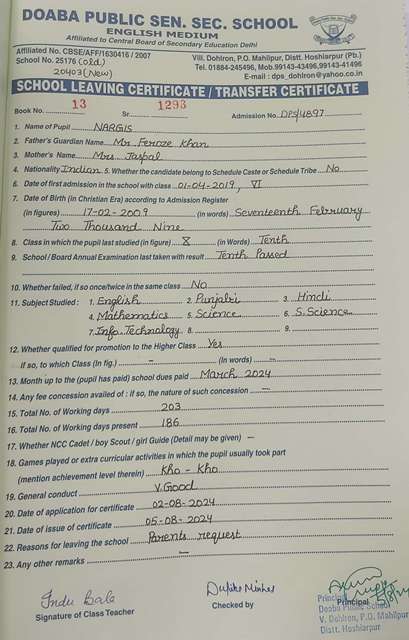 DOABA PUBLIC SEN. SEC. SCHOOL
ENGLISH MEDIUM
Affiliated to Central Board of Secondary Education Delhi
Affiliated No. CBSE/AFF/1630416 / 2007
School No. 25176 (old)
20403 (New)
Vill. Dohlron, P.O. Mahilpur, Distt. Hoshiarpur (Pb.)
Tel. 01884-245496, Mob.99143-43496,99143-41496
E-mail : dps_dohlron@yahoo.co.in
SCHOOL LEAVING CERTIFICATE / TRANSFER CERTIFICATE
Book No. 13 Sr. 1293 Admission No. DPS/4897
1. Name of Pupil NARGIS
2. Father's Guardian Name Mr. Feroze Khan
3. Mother's Name Mrs. Jaspal
4. Nationality Indian 5. Whether the candidate belong to Schedule Caste or Schedule Tribe No
6. Date of first admission in the school with class 01-04-2019, VI
7. Date of Birth (in Christian Era) according to Admission Register
(in figures) 17-02-2009 (in words) Seventeenth February
Two Thousand Nine
8. Class in which the pupil last studied (in figure) X (in Words) Tenth
9. School / Board Annual Examination last taken with result Tenth Passed
10. Whether failed, if so once/twice in the same class No
11. Subject Studied : 1. English 2. Punjabi 3. Hindi
4. Mathematics 5. Science 6. S.Science
7. Info. Technology 8. 9.
12. Whether qualified for promotion to the Higher Class Yes
If so, to which Class (In fig.) - (In words) -
13. Month up to the (pupil has paid) school dues paid March 2024
14. Any fee concession availed of : if so, the nature of such concession -
15. Total No. of Working days 203
16. Total No. of Working days present 186
17. Whether NCC Cadet / boy Scout / girl Guide (Detail may be given) -
18. Games played or extra curricular activities in which the pupil usually took part
(mention achievement level therein) Kho - Kho
19. General conduct V.Good
20. Date of application for certificate 02-08-2024
21. Date of issue of certificate 05-08-2024
22. Reasons for leaving the school Parents request
23. Any other remarks -
Indu Bala
Signature of Class Teacher
Checked by
Principal
Principal
Doaba Public School
V. Dohlron, P.O. Mahilpur
Distt. Hoshiarpur